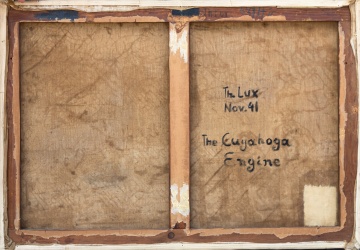 Th Lux
Nov. 41
The Cuyahoga
Engine